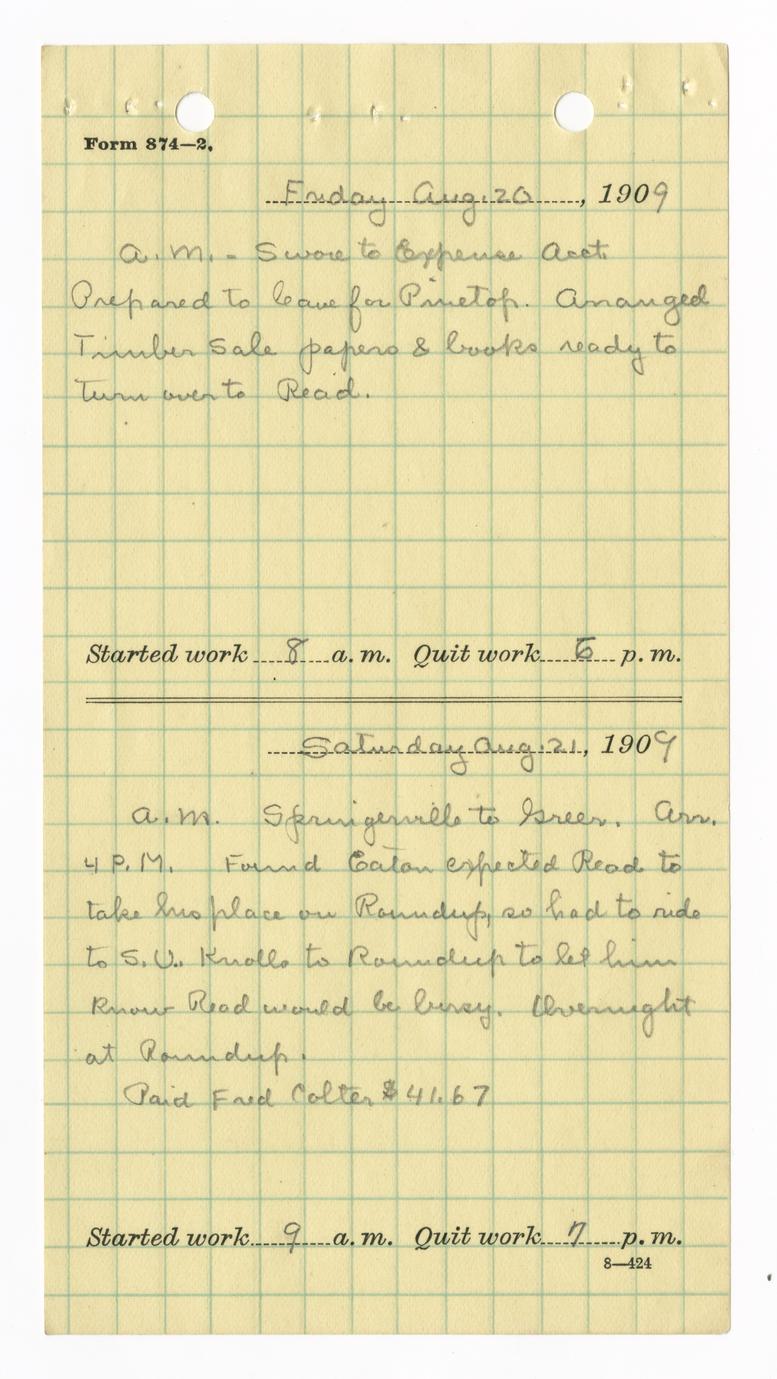 Form 874—2.
Friday Aug. 20, 1909
A.M. - Swore to Expense Acct.
Prepared to leave for Pinetop. Arranged
Timber Sale papers & books ready to
turn over to Read.
Started work 8 a. m. Quit work 5 p. m.
Saturday Aug. 21, 1909
A.M. Springerville to Greer. Arr.
4 P.M. Found Eaton expected Read to
take his place on Roundup, so had to ride
to S.U. Knolls to Roundup to let him
know Read would be busy. Overnight
at Roundup.
Paid Fred Colter $41.67
Started work 9 a. m. Quit work 7 p. m.
8—424